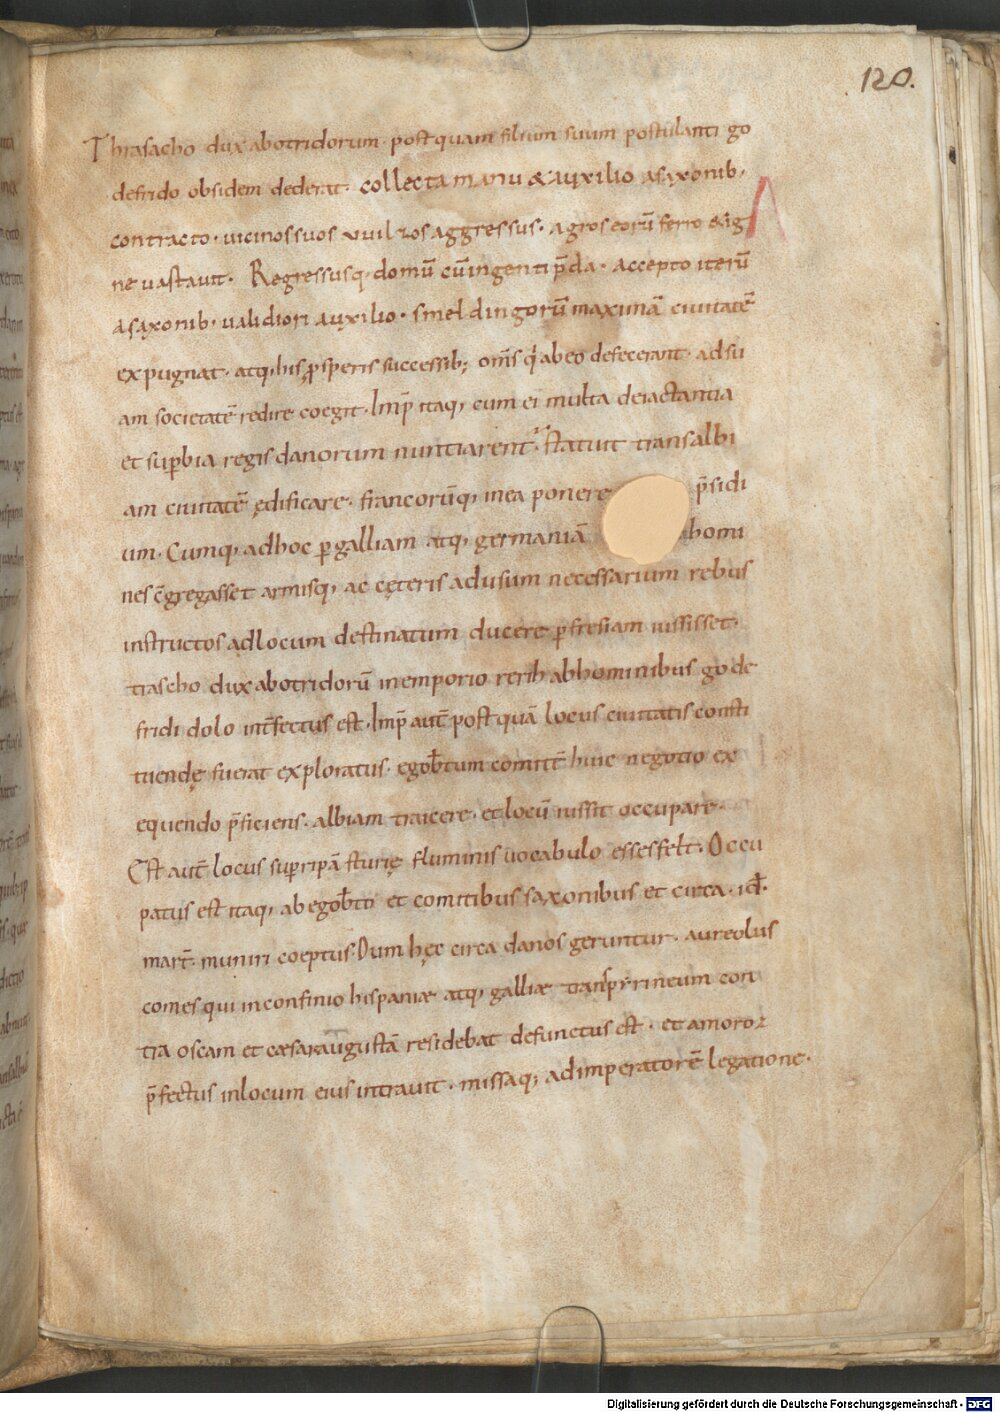 120.
Thrasacho dux abotridorum· postquam filium suum postulanti go
defrido obsidem dederat· collecta manu & auxilio a saxonib·
contracto· vicinos suos vuilzos aggressus· agros eorū ferro & ig
ne vastavit· Regressusq· domū cū ingenti p̄da· accepto iterū
a saxonib· validiori auxilio· smeldingorū maximā civitatē
expugnat· atq, his ꝓsperis successib; om̄s q̇ ab eo defecerant· ad su
am societatē redire coegit· Imp̄ itaq, cum ei multa de iactantia
et suꝑbia regis danorum nuntiarent᷑· statuit trans albi
am civitatē ędificare· francorūq, in ea ponere p̄sidi
um· Cumq, ad hoc ꝑ galliam atq, germaniā homi
nes c̄gregasset armisq, ac cęteris ad usum necessarium rebus
instructos ad locum destinatum ducere ꝑ fresiam iussisset·
trascho dux abotridorū in emporio rerih ab hominibus gode
fridi dolo int̄fectus est· Imp̄ aut̄ postquā locus civitatis consti
tuendę fuerat exploratus· egob̄tum comitē huic negotio ex
equendo p̄ficiens· albiam traicere· et locū iussit occupare·
Est aut̄ locus suꝑ ripā sturię fluminis vocabulo essesfelt· Occu
patus est itaq, ab egob̄to et comitibus saxonibus et circa· id̄·
mart̄· muniri coeptus· Dum hęc circa danos geruntur· aureolus
comes qui in confinio hispaniæ atq, galliæ trans pyrineum con
tra oscam et cæsaraugustā residebat defunctus est· et amoroz
p̄fectus in locum eius intravit· missaq, ad imperatorē legatione·
Digitalisierung gefördert durch die Deutsche Forschungsgemeinschaft - DFG